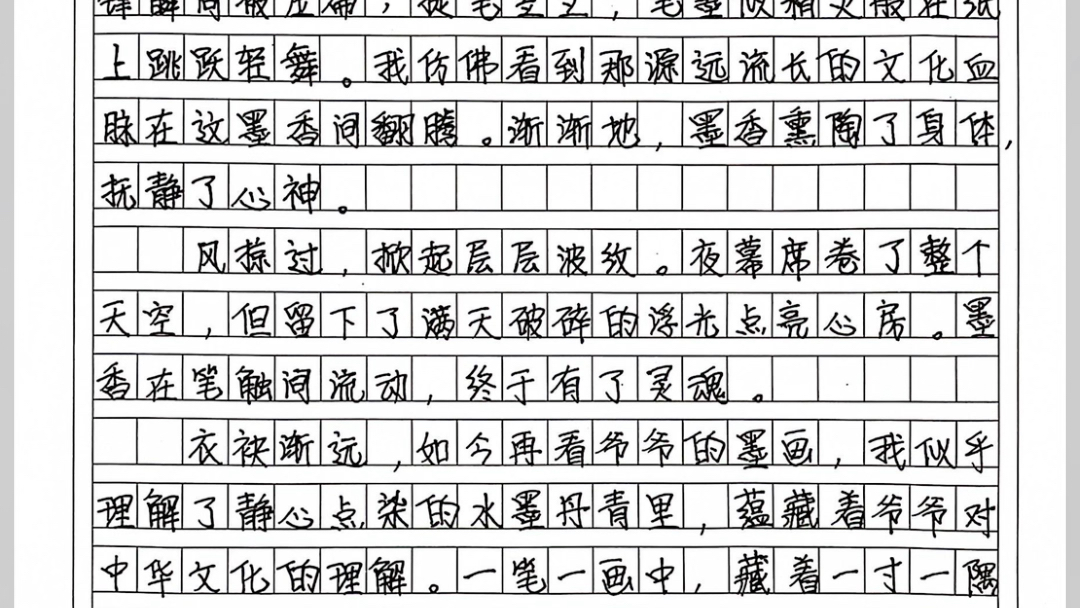 上跳跃轻舞。我仿佛看到那源远流长的文化血
脉在这墨香间翻腾。渐渐地，墨香熏陶了身体，
抚静了心神。
风掠过，掀起层层波纹。夜幕席卷了整个
天空，但留下了满天破碎的浮光点亮心房。墨
香在笔触间流动，终于有了灵魂。
衣袂渐远，如今再看爷爷的墨画，我似乎
理解了静心点染的水墨丹青里，蕴藏着爷爷对
中华文化的理解。一笔一画中，藏着一寸一隅